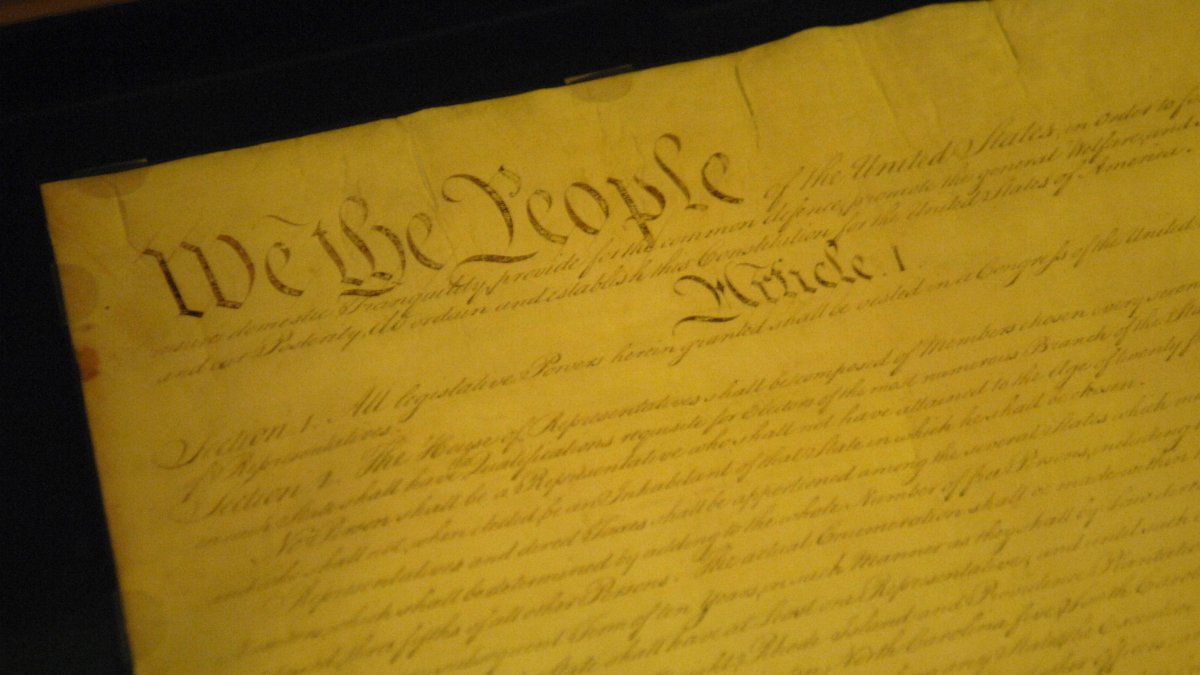 We the People of the United States, in Order to
domestic Tranquility, provide for the common defence, promote the general Welfare, and
and our Posterity, do ordain and establish this Constitution for the United States of America.
Article. I.
Section 1. All legislative Powers herein granted shall be vested in a Congress of the United
of Representatives.
Section 2. The House of Representatives shall be composed of Members chosen every second
in each State shall have the Qualifications requisite for Electors of the most numerous Branch of the
No Person shall be a Representative who shall not have attained to the Age of twenty
and who shall not, when elected, be an Inhabitant of that State in which he shall be chosen.
Representatives and direct Taxes shall be apportioned among the several States which
which shall be determined by adding to the whole Number of free Persons, including
three fifths of all other Persons. The actual Enumeration shall be made within
subsequent Term of ten Years, in such Manner as they shall by Law
State shall have at Least one Representative; and until such
Rhode Island and Providence
North Carolina five, South